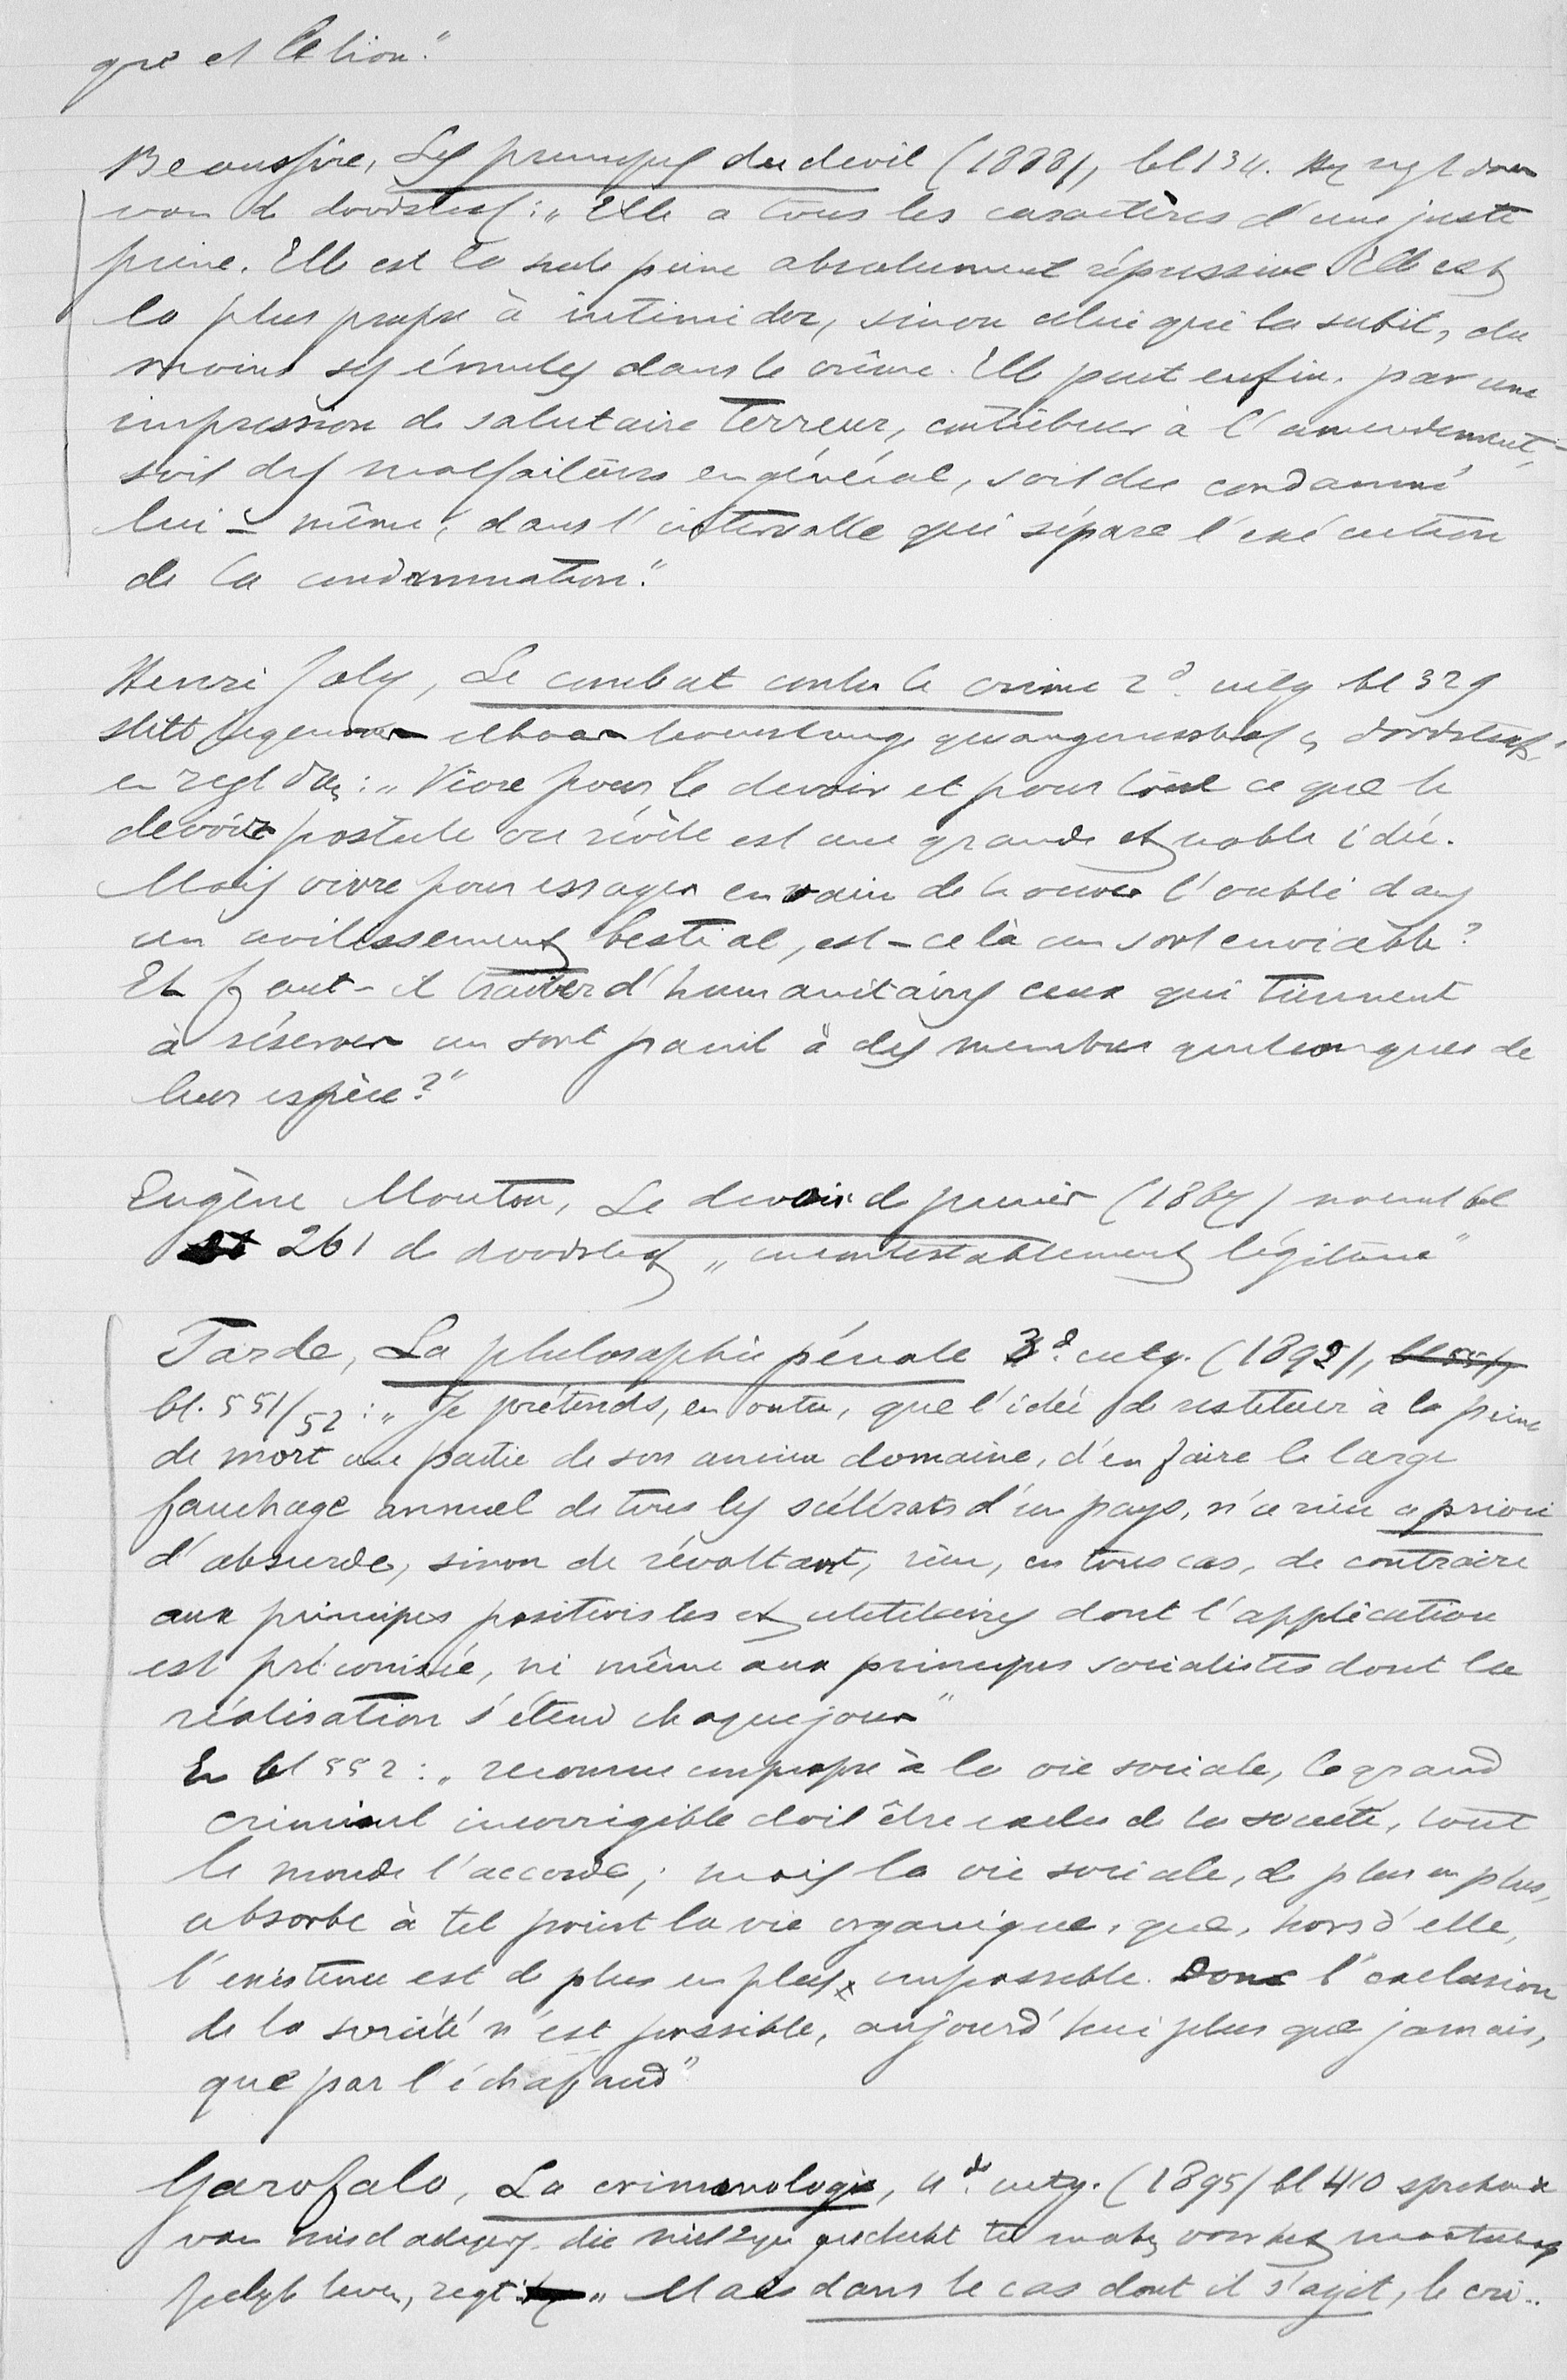 que et l'élion."
Beaussire, Les principes du devil (1888), bl 134. Hij zegt daar
van de doodstraf: „Elle a tous les caractères d'une juste
peine. Elle est la seule peine absolument répressive. Elle est
la plus propre à intimider, sinon celui qui la subit, du
moins ses émules dans le crime. Elle peut enfin, par une
impression de salutaire terreur, contribuer à l'amendement,
soit des malfaiteurs en général, soit du condamné
lui-même, dans l'intervalle qui sépare l'exécution
de la condamnation."
Henri Joly, Le combat contre le crime 2e uitg bl 329
stelt tegenover elkaar levenslange gevangenisstraf en doodstraf
en zegt dan: „Vivre pour le devoir et pour tout ce que le
devoir postule ou révèle est une grande et noble idée.
Mais vivre pour essayer en vain de trouver l'oubli dans
un avilissement bestial, est-ce là un sort enviable?
Et faut-il traiter d'humanitaires ceux qui tiennent
à réserver un sort pareil à des membres quelconques de
leur espèce?"
Eugène Mouton, Le devoir de punir (1887) noemt bl
261 de doodstraf „incontestablement légitime"
Tarde, La philosophie pénale 3e uitg. (1892), bl 551
bl. 551/52: „Je prétends, en outre, que l'idée de restituer à la peine
de mort une partie de son ancien domaine, d'en faire le large
fauchage annuel de tous les scélérats d'un pays, n'a rien a priori
d'absurde, sinon de révoltant, rien, en tous cas, de contraire
aux principes positivistes et utilitaires dont l'application
est préconisée, ni même aux principes socialistes dont la
réalisation s'étend chaque jour"
En bl 552: „reconnu impropre à la vie sociale, le grand
criminel incorrigible doit être exclu de la société, tout
le monde l'accorde; mais la vie sociale, de plus en plus,
absorbe à tel point la vie organique, que, hors d'elle,
l'existence est de plus en plus impossible. Donc l'exclusion
de la société n'est possible, aujourd'hui plus que jamais,
que par l'échafaud"
Garofalo, La criminologie, 4de uitg. (1895) bl 410 sprekende
van misdadigers die niet zijn geschikt te maken voor het maatschap
pelijk leven, zegt: „Mais dans le cas dont il s'agit, le cri-